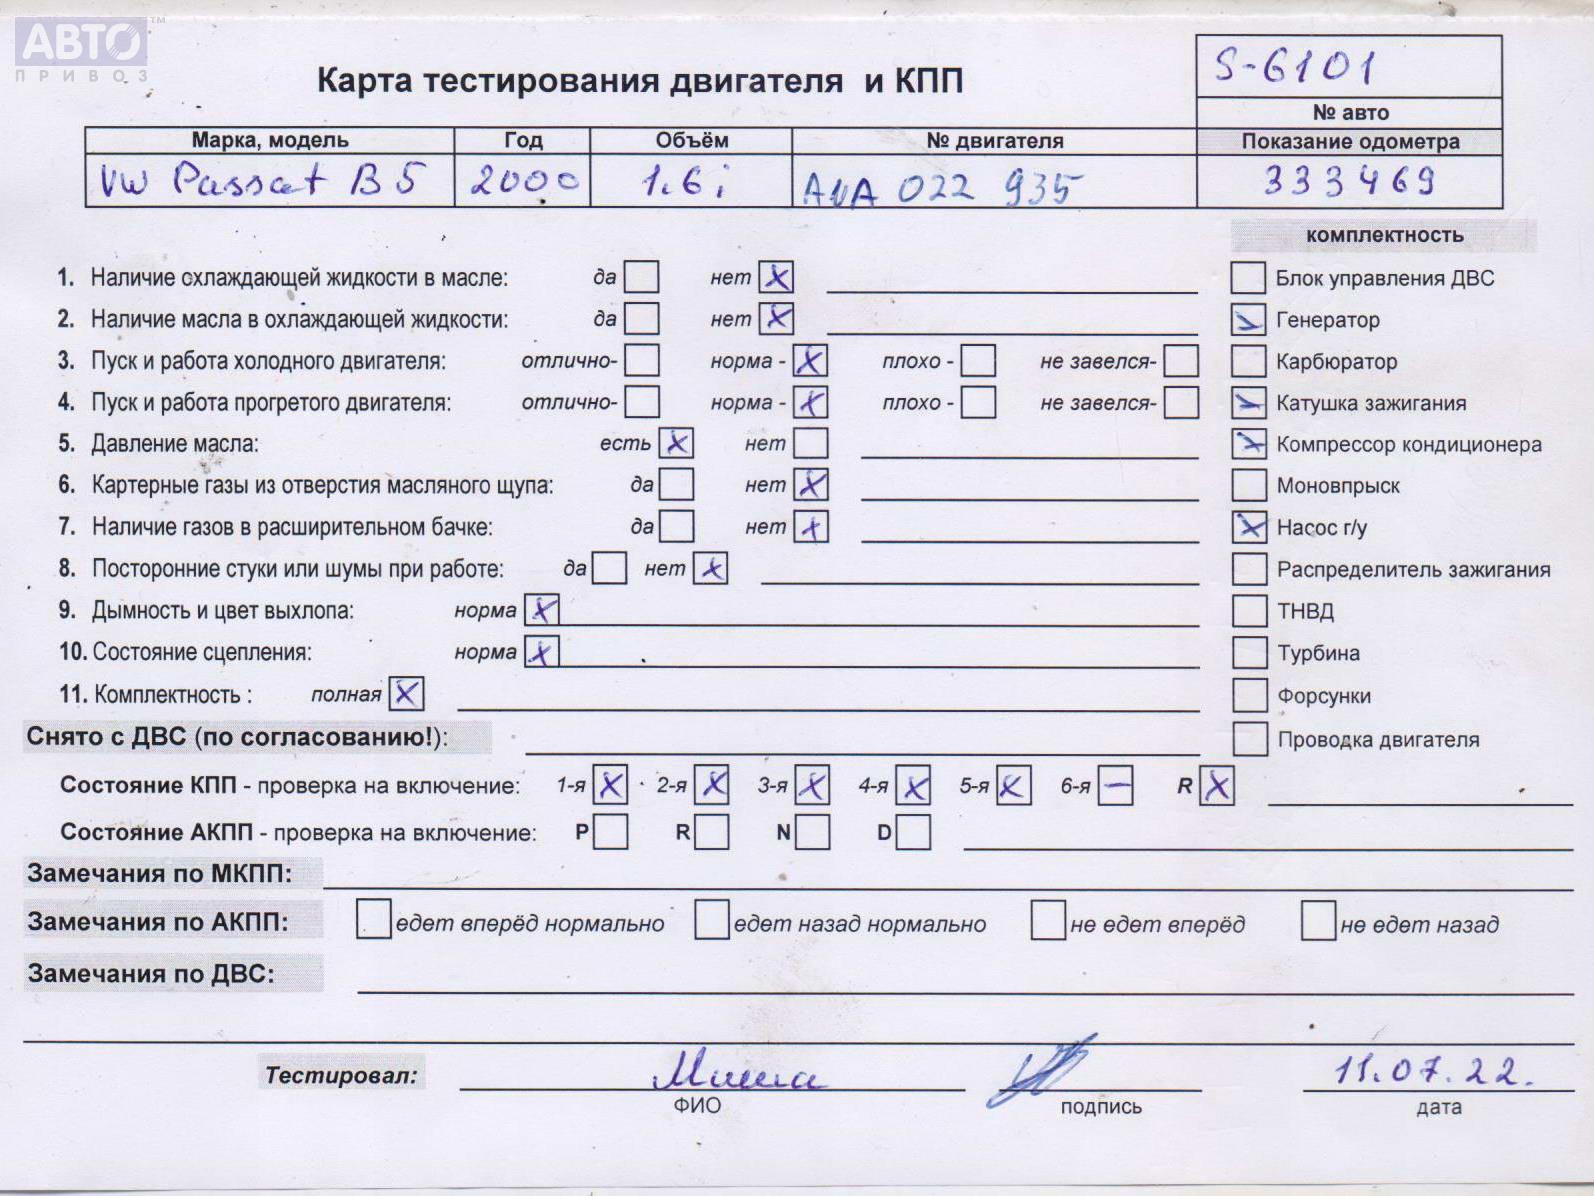 АВТО ™
ПРИВОЗ
Карта тестирования двигателя и КПП
S-6101
№ авто
Марка, модель Год Объём № двигателя Показание одометра
VW Passat B5 2000 1.6i 022 935 333469
комплектность
1. Наличие охлаждающей жидкости в масле: да нет X Блок управления ДВС
2. Наличие масла в охлаждающей жидкости: да нет X Генератор
3. Пуск и работа холодного двигателя: отлично- норма - X плохо - не завелся- Карбюратор
4. Пуск и работа прогретого двигателя: отлично- норма - X плохо - не завелся- Катушка зажигания
5. Давление масла: есть X нет Компрессор кондиционера
6. Картерные газы из отверстия масляного щупа: да нет X Моновпрыск
7. Наличие газов в расширительном бачке: да нет X Насос г/у
8. Посторонние стуки или шумы при работе: да нет X Распределитель зажигания
9. Дымность и цвет выхлопа: норма X ТНВД
10. Состояние сцепления: норма X Турбина
11. Комплектность : полная X Форсунки
Снято с ДВС (по согласованию!): Проводка двигателя
Состояние КПП - проверка на включение: 1-я X 2-я X 3-я X 4-я X 5-я X 6-я — R X
Состояние АКПП - проверка на включение: P R N D
Замечания по МКПП:
Замечания по АКПП: едет вперёд нормально едет назад нормально не едет вперёд не едет назад
Замечания по ДВС:
Тестировал: Миша 11.07.22.
ФИО подпись дата